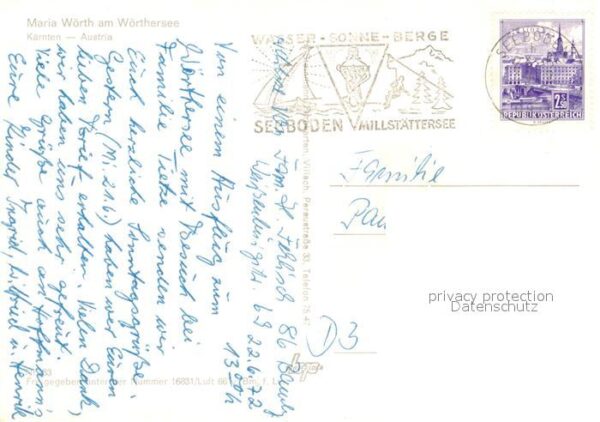 Maria Wörth am Wörthersee
Kärnten – Austria
WASSER - SONNE - BERGE
SEEBODEN MILLSTÄTTERSEE
SEEBODEN
2.50
REPUBLIK ÖSTERREICH
Von einem Ausflug zum
Wörthersee mit Besuch bei
Familie Tietze senden wir
Euch herzliche Sonntagsgrüße.
Gestern (Mi. 21.6.) haben wir Euren
lieben Brief erhalten. Vielen Dank,
wir haben uns sehr gefreut.
Viele Grüße auch an
Eure Kinder Ingrid, u. Henrik
13 00 h
22.6.72
Familie
Pau
D3
Villach, Peraustraße 33, Telefon
Freigegeben unter der Nummer 16831/Luft
privacy protection
Datenschutz